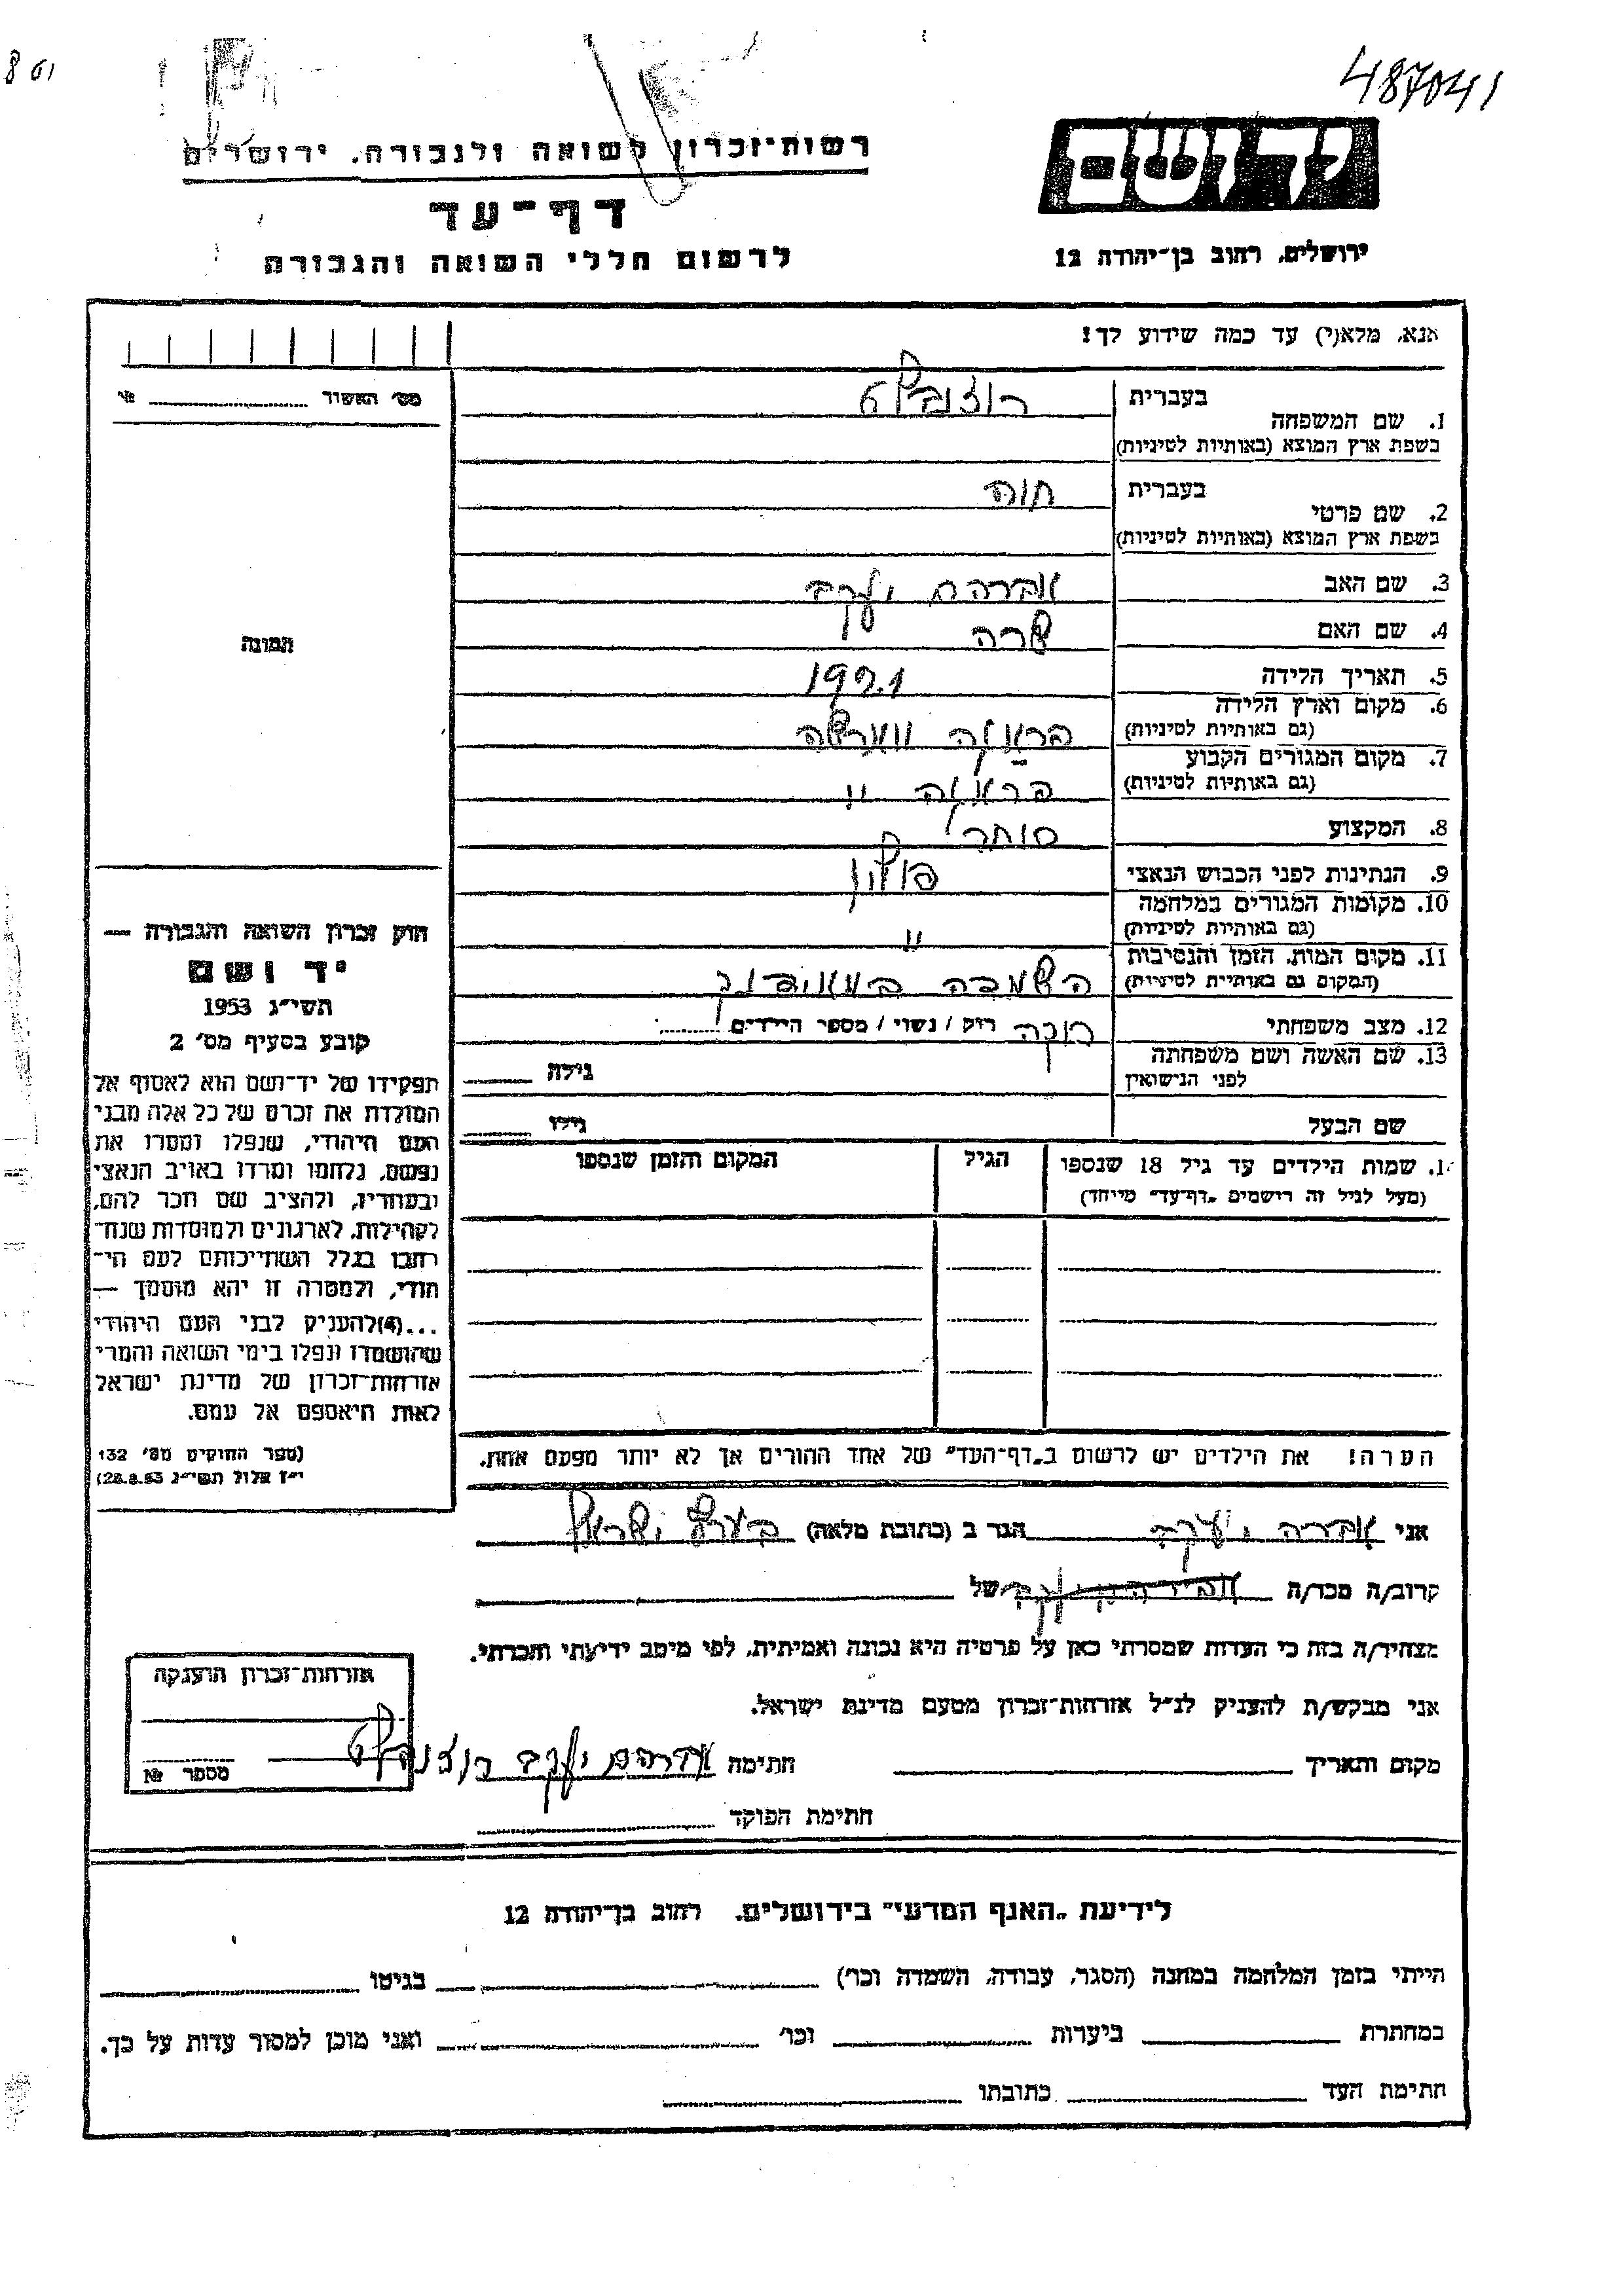 487041
רשות־זכרון לשואה ולגבורה, ירושלים
יד ושם
דף־עד
לרשום חללי השואה והגבורה
ירושלים, רחוב בן־יהודה 12
אנא, מלא(י) עד כמה שידוע לך!
מס׳ האשור № 
1. שם המשפחה בעברית רוזנבלט
בשפת ארץ המוצא (באותיות לטיניות)
2. שם פרטי בעברית חוה
בשפת ארץ המוצא (באותיות לטיניות)
3. שם האב אברהם יעקב
4. שם האם שרה
תמונה
5. תאריך הלידה
6. מקום וארץ הלידה
(גם באותיות לטיניות)
7. מקום המגורים הקבוע
(גם באותיות לטיניות)
8. המקצוע סוחר
9. הנתינות לפני הכבוש הנאצי פולין
10. מקומות המגורים במלחמה
(גם באותיות לטיניות) "
11. מקום המות, הזמן והנסיבות
(המקום גם באותיות לטיניות) השמדה
12. מצב משפחתי רוקה רוק / נשוי / מספר הילדים
13. שם האשה ושם משפחתה
לפני הנישואין גילה
שם הבעל גילו
שמות הילדים עד גיל 18 שנספו הגיל המקום והזמן שנספו
(מעל לגיל זה רושמים „דף־עד" מיוחד)
הערה! את הילדים יש לרשום ב„דף־העד" של אחד ההורים אך לא יותר מפעם אחת.
חוק זכרון השואה והגבורה —
יד ושם
תשי״ג 1953
קובע בסעיף מס׳ 2
תפקידו של יד־ושם הוא לאסוף אל
המולדת את זכרם של כל אלה מבני
העם היהודי, שנפלו ומסרו את
נפשם, נלחמו ומרדו באויב הנאצי
ובעוזריו, ולהציב שם וזכר להם,
לקהילות, לארגונים ולמוסדות שנח־
רבו בגלל השתייכותם לעם הי־
הודי, ולמטרה זו יהא מוסמך —
...(4)להעניק לבני העם היהודי
שהושמדו ונפלו בימי השואה והמרי
אזרחות־זכרון של מדינת ישראל
לאות היאספם אל עמם.
(ספר החוקים מס׳ 132
י״ז אלול תשי״ג 28.8.53)
אני יעקב הגר ב (כתובת מלאה) ישראל
קרוב/ה מכר/ה של
מצהיר/ה בזה כי העדות שמסרתי כאן על פרטיה היא נכונה ואמיתית, לפי מיטב ידיעתי והכרתי.
אני מבקש/ת להעניק לנ״ל אזרחות־זכרון מטעם מדינת ישראל.
מקום ותאריך חתימה אברהם יעקב רוזנבלט
חתימת הפוקד
אזרחות־זכרון הוענקה
מספר №
לידיעת „האגף המדעי" בירושלים, רחוב בן־יהודה 12
הייתי בזמן המלחמה במחנה (הסגר, עבודה, השמדה וכו׳) בגיטו
במחתרת ביערות וכו׳ ואני מוכן למסור עדות על כך.
חתימת העד כתובתו